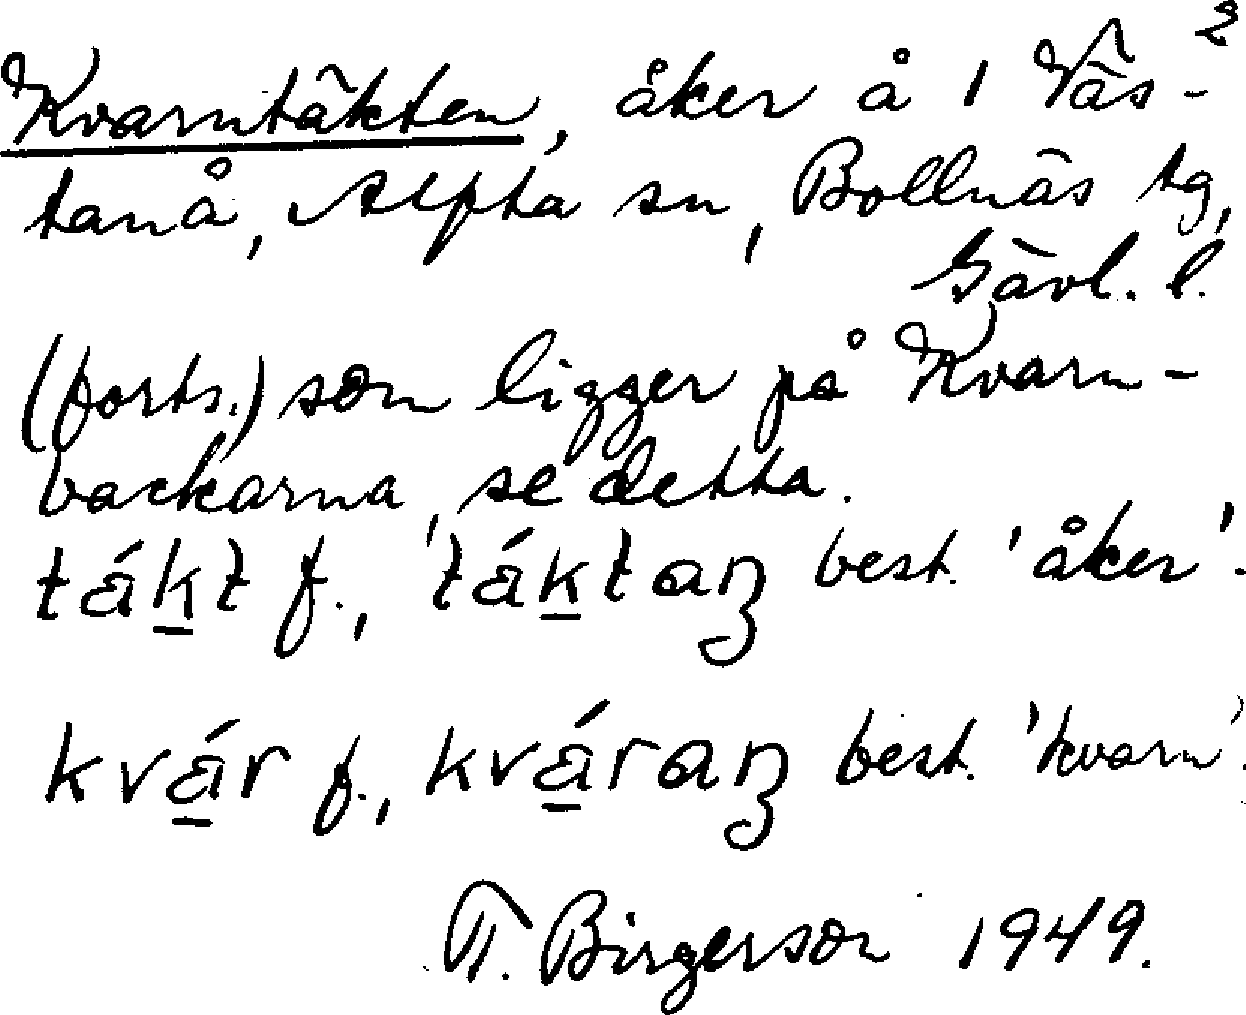 2
Kvarntäkten, åker å 1 Väs-
tanå, Alfta sn, Bollnäs tg,
Gävl. l.
(forts.) som ligger på Kvarn-
backarna, se detta.
ták̲t f., 'ták̲taꞑ best. 'åker'.
kvá̲r f., kvá̲raꞑ best. 'kvarn'.
T. Birgerson 1949.